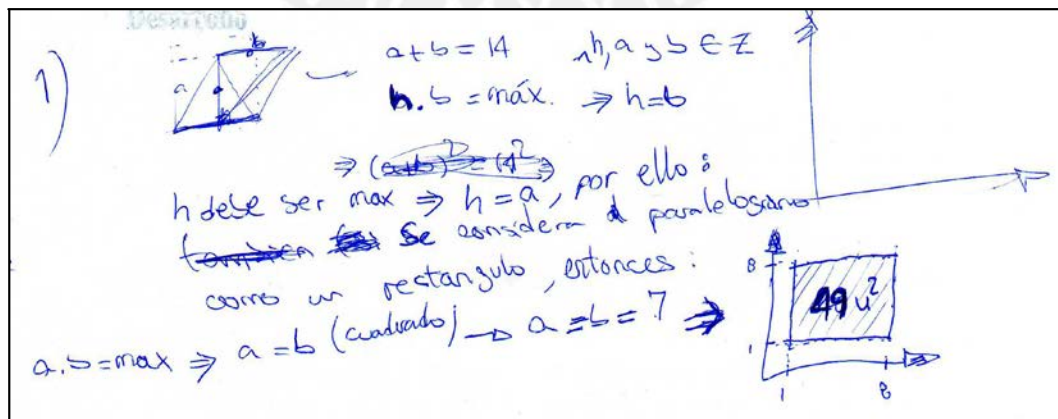 Desarrollo
1)
a
b
h
a+b = 14 ∧ h, a y b ∈ Z
h.b = máx. ⇒ h=b
⇒ (a+b)² = 14²
h debe ser max ⇒ h=a, por ello :
también se considera al paralelogramo
como un rectangulo, entonces :
a.b=max ⇒ a=b (cuadrado) → a=b=7 ⇒
8
49 u²
1
1 8